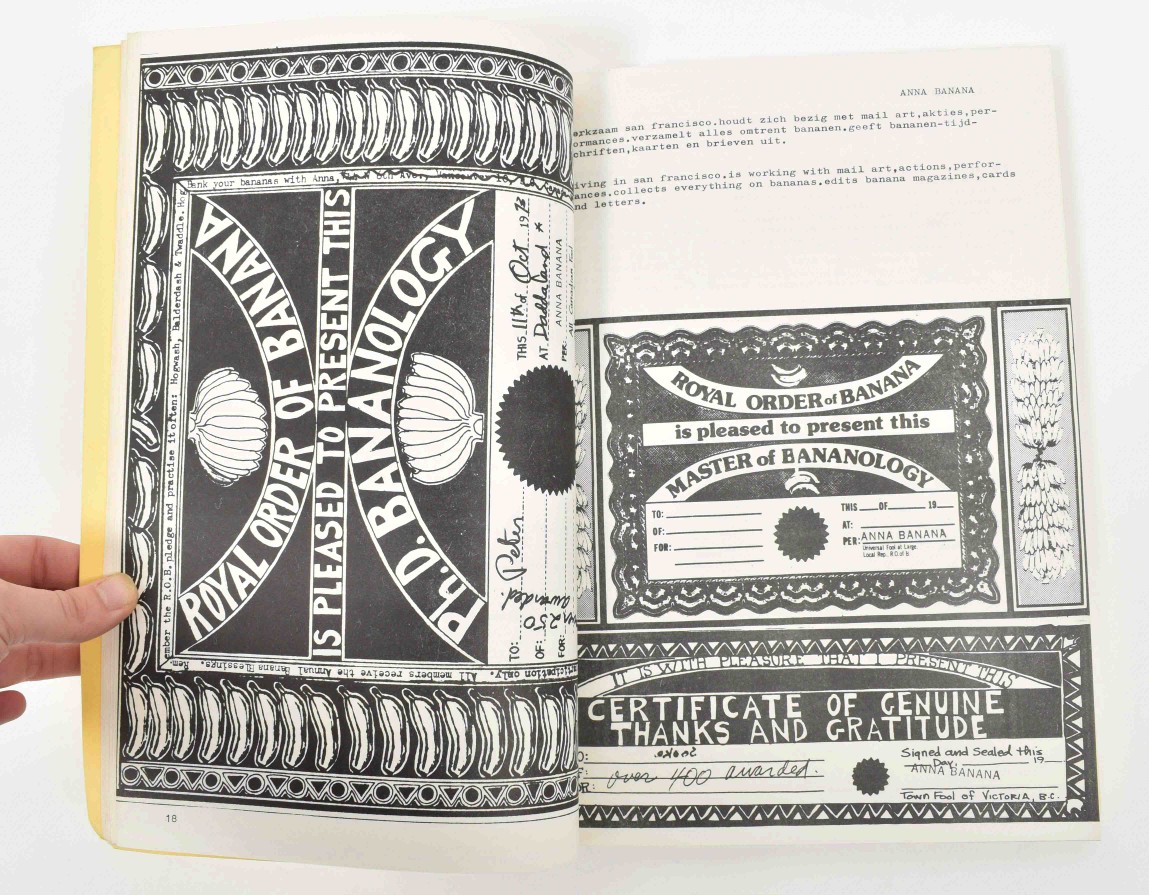 Bank your bananas with Anna,
ROYAL ORDER OF BANANA
IS PLEASED TO PRESENT THIS
Ph.D. BANANOLOGY
TO: Peter
OF: 250 awarded.
FOR:
THIS 11th of Oct 1973
AT Daddaland *
PER: ANNA BANANA
All Canadian Fool
ticipation only. All members receive the Annual Banana Blessings. Rem-
ember the R.O.B. pledge and practise it often: Hogwash, Balderdash & Twaddle. Ho
18
ANNA BANANA
erkzaam san francisco.houdt zich bezig met mail art,akties,per-
ormances.verzamelt alles omtrent bananen.geeft bananen-tijd-
chriften,kaarten en brieven uit.
iving in san francisco.is working with mail art,actions,perfor-
ances.collects everything on bananas.edits banana magazines,cards
nd letters.
ROYAL ORDER of BANANA
is pleased to present this
MASTER of BANANOLOGY
TO:
OF:
FOR:
THIS OF 19
AT:
PER: ANNA BANANA
Universal Fool at Large.
Local Rep. R.O. of B.
IT IS WITH PLEASURE THAT I PRESENT THIS
CERTIFICATE OF GENUINE
THANKS AND GRATITUDE
O:
F: over 400 awarded.
OR:
Signed and Sealed this
Day, 19
ANNA BANANA
Town Fool of VICTORIA, B.C.